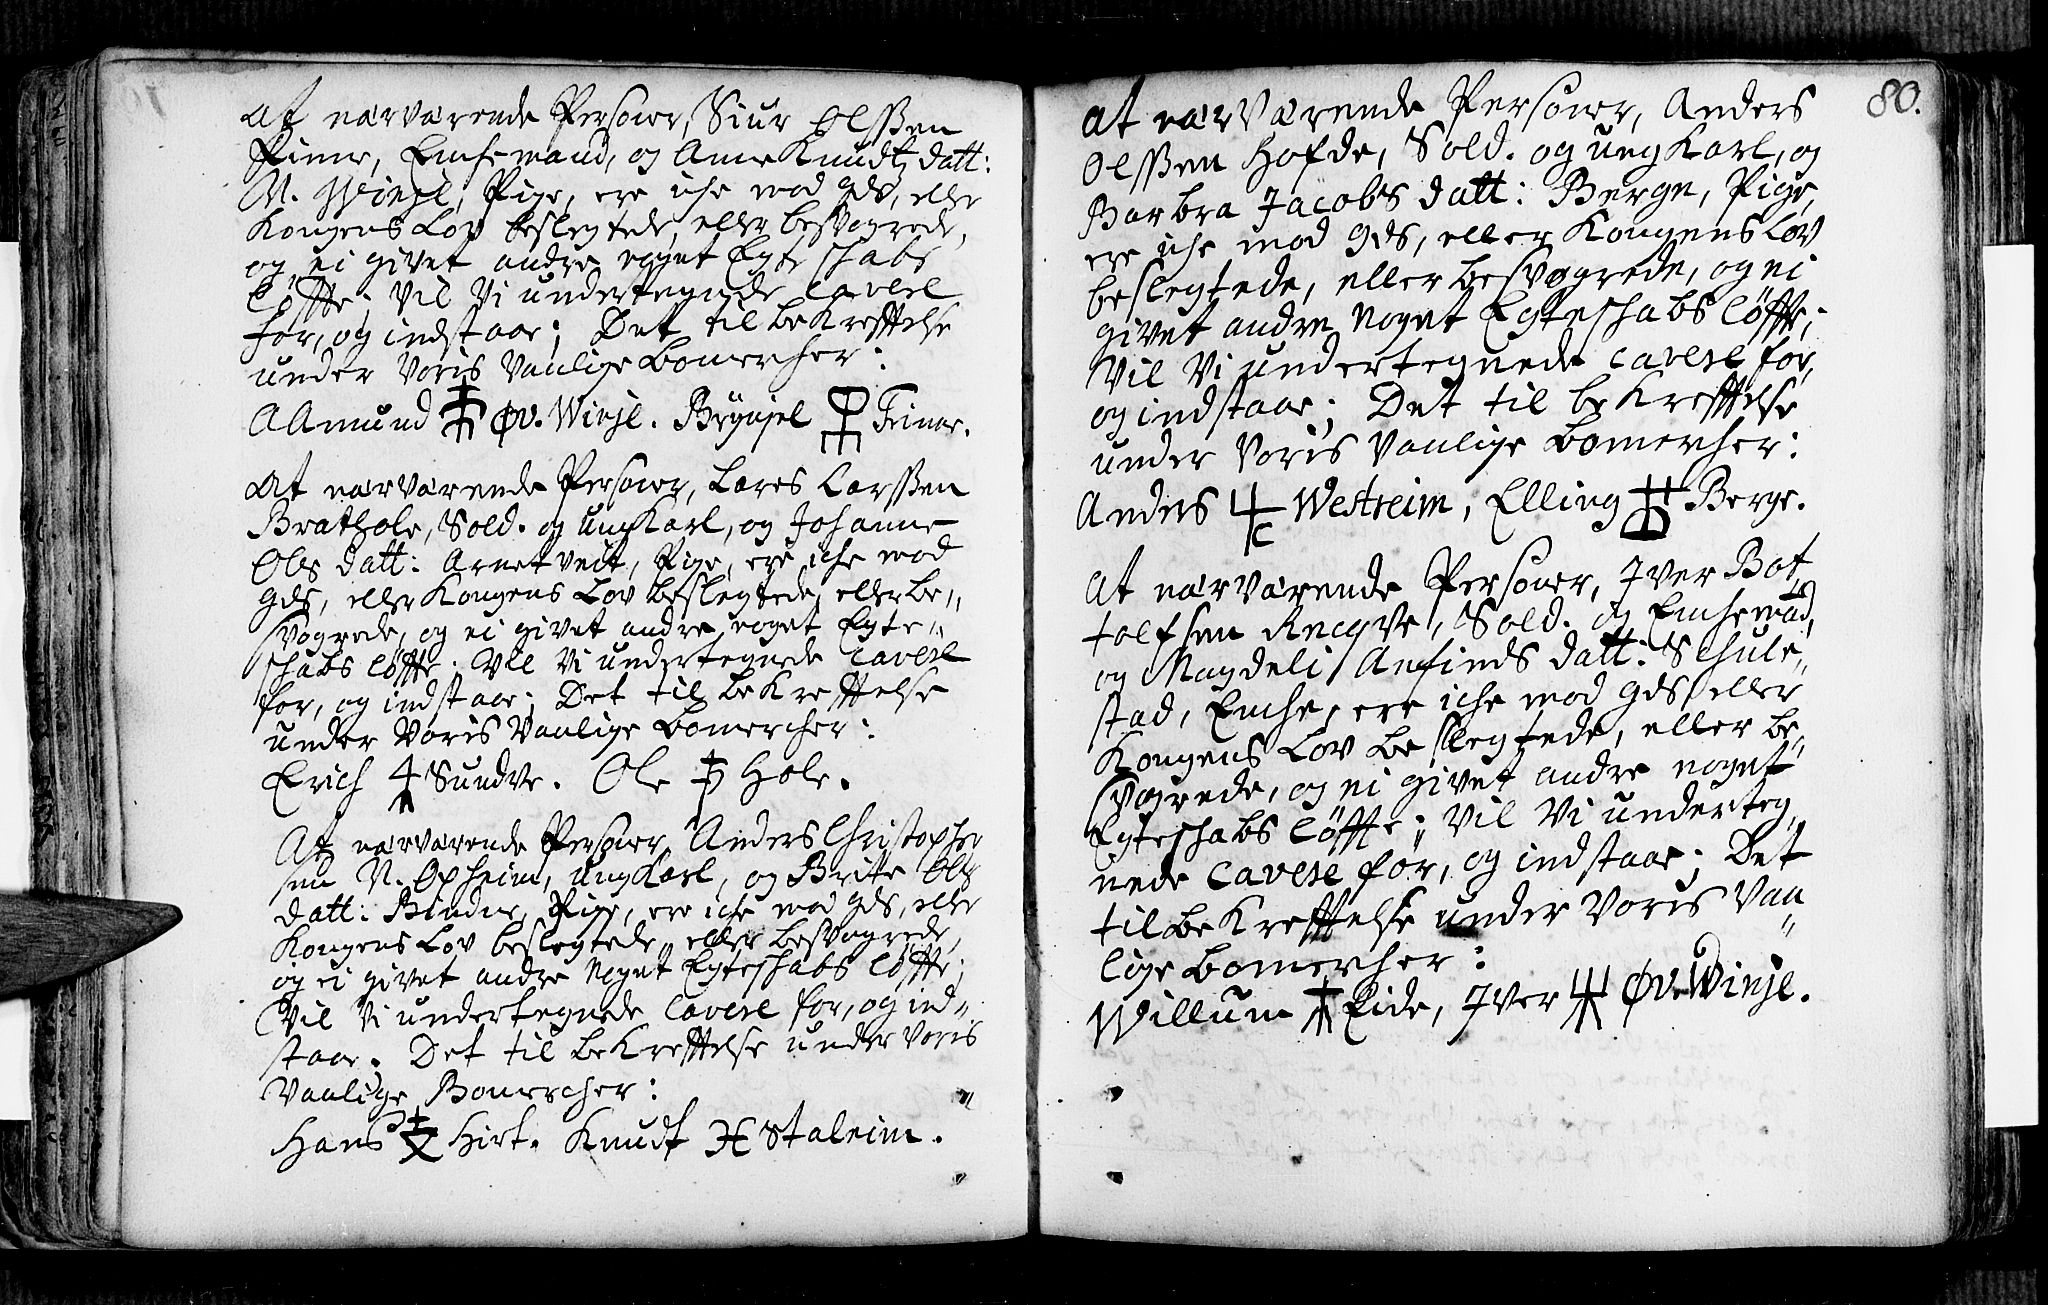 At nærværende Personer, Siur Olsßen
Finne, Enchemand, og Anne Knudtz datt:
N. Winjl, Pige, ere iche mod Gds, eller
Kongens Lov beslegtede, eller besvogrede,
og ei givet andre noget Egte schabs
Løffte; Vil Vi undertegnede Cavere
for, og indstaae; Det til bekrefftelse
under Voris Vanlige Bomercher:
AAmund Øv. Winjl. Brÿnjel Finne.
At nærværende Personer, Lares Larsßen
Brathole, Sold. og ungKarl, og Johanne
Oles datt: Arnetveit, Pige, ere iche mod
Gds, eller Kongens Lov beslegtede, eller be,,
svogrede, og ei givet andre noget Egte,,
schabs løffte; Vil Vi undertegnede Cavere
for, og indstaae; Det til bekrefftelse
under Voris Vanlige Bomercher:
Erich Sundve. Ole Hole.
At nærværende Personer, Anders Christopher
sen N. Opheim, ungKarl, og Britte Oles
datt: Binde, Pige, ere iche mod Gds, eller
Kongens Lov beslegtede, eller besvogrede,
og ei givet andre noget Egteschabs løffte;
Vil Vi undertegnede Cavere for, og ind,,
staae. Det til bekrefftelse under Voris
Vanlige Bomercher:
Hans Hirt. Knudt Staleim.
80.
At nærværende Personer, Anders
Olsßen Hofde, Sold. og ungKarl, og
Barbra Jacobs datt: Berge, Pige,
ere iche mod Gds, eller Kongens Lov
beslegtede, eller besvogrede, og ei
givet andre noget Egteschabs løffte;
Vil Vi undertegnede Cavere for,
og indstaae; Det til bekrefftelse
under Voris Vanlige Bomercher:
Anders Westreim, Elling Berge.
At nærværende Personer, Iver Bot,,
tolfsen Recqve, Sold. og Enchemad,
og Magdeli Anfinds datt: Schule,,
stad, Enche, ere iche mod Gds eller
Kongens Lov beslegtede, eller be,,
svogrede, og ei givet andre noget
Egteschabs løffte; Vil Vi underteg,,
nede Cavere for, og indstaae; Det
til bekrefftelse under Voris Van,,
lige Bomercher:
Willum Eide, Iver Øv. Winjl.